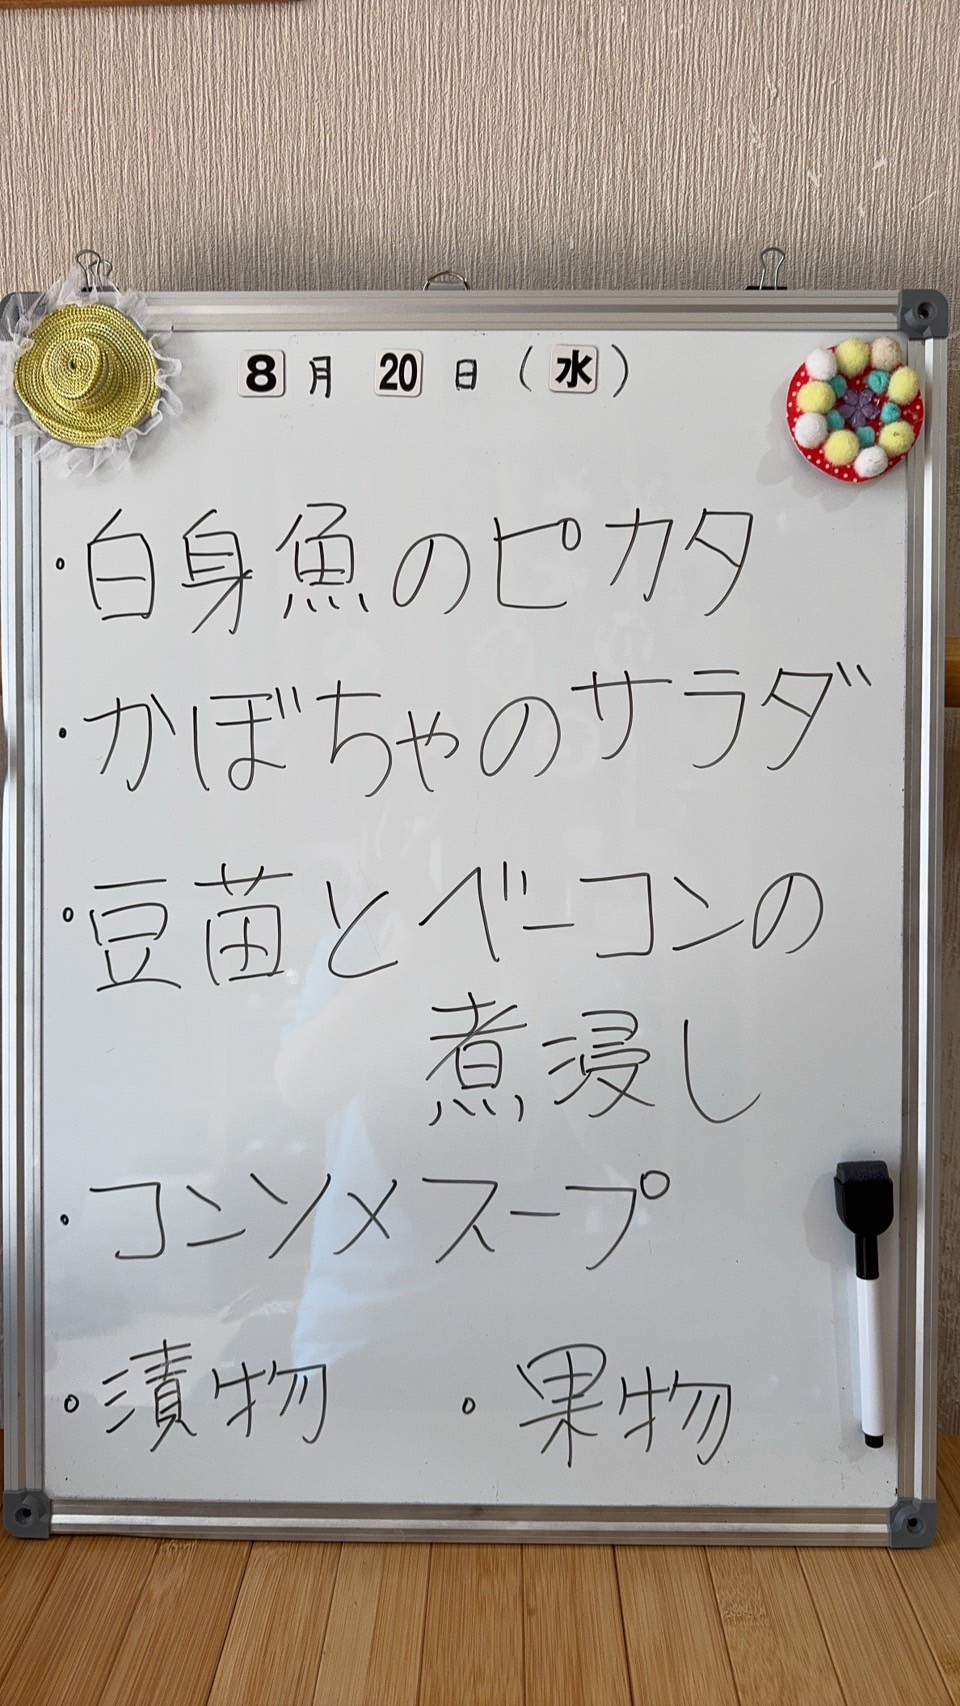 8月20日(水)
・白身魚のピカタ
・かぼちゃのサラダ
・豆苗とベーコンの
煮浸し
・コンソメスープ
・漬物 ・果物